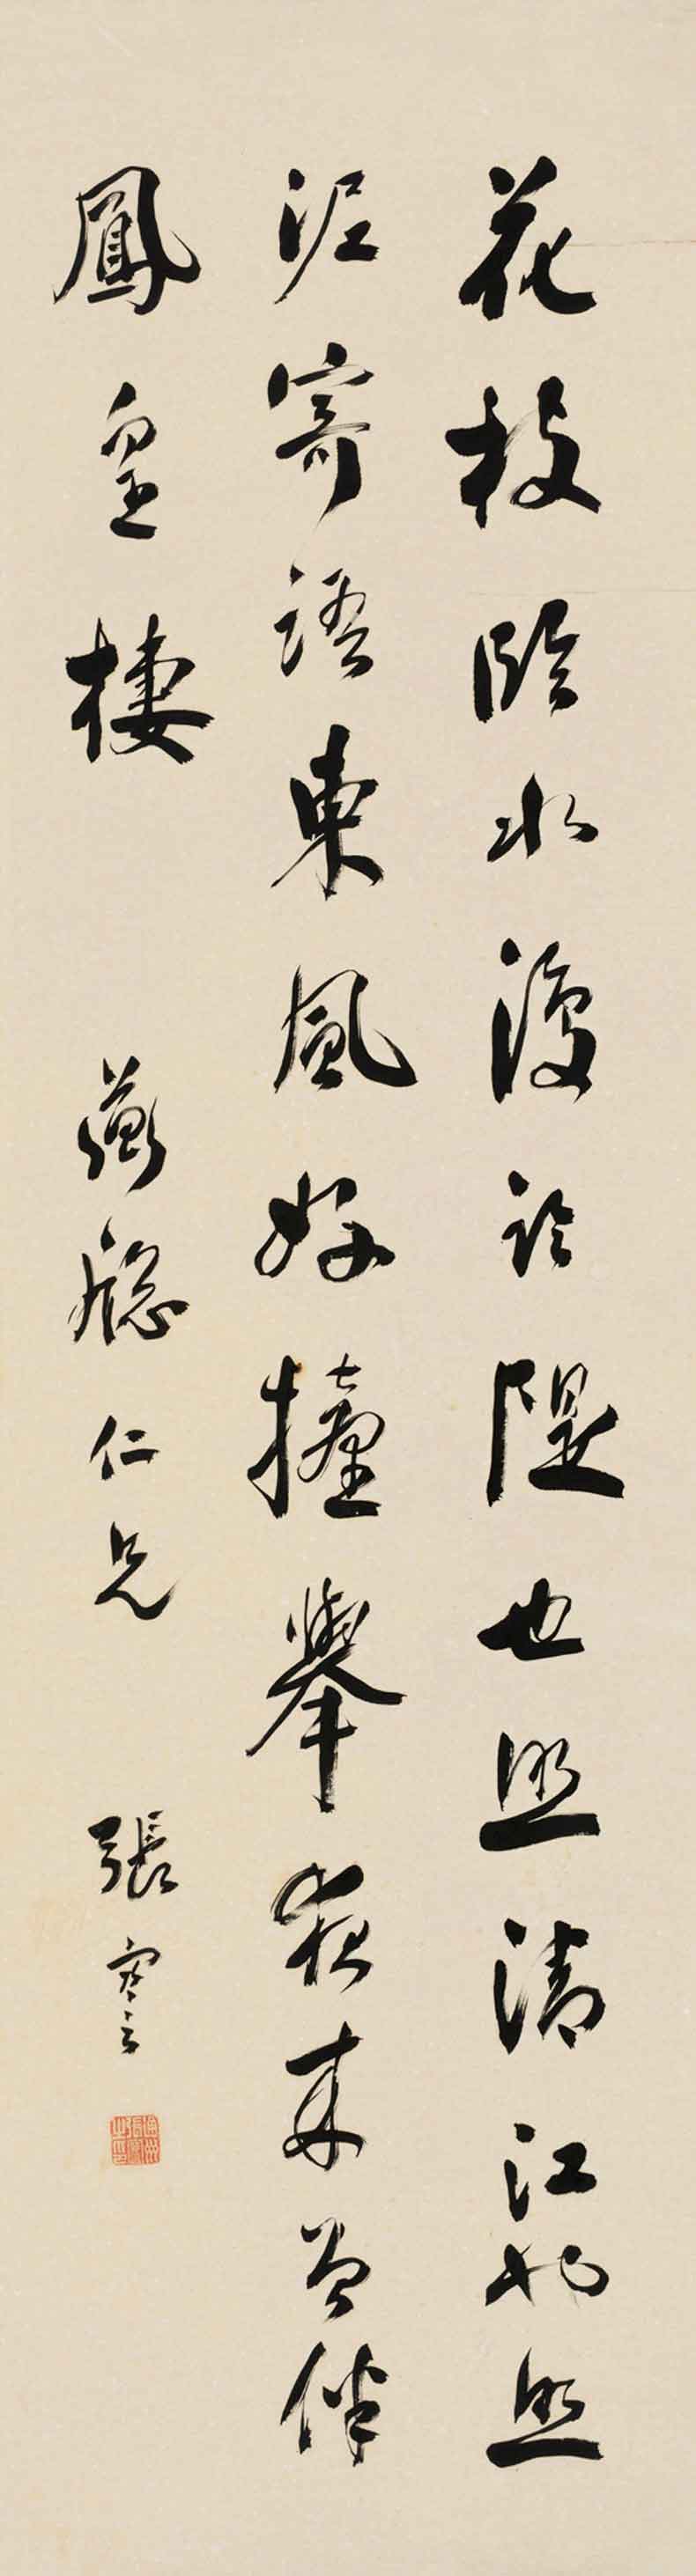 花枝臨水復臨隄也照清江也照
泥寄語東風好擡舉夜來曾伴
鳳皇棲 蘅牕仁兄 張謇